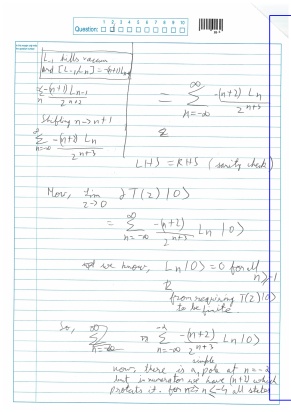 Question: 1 2 3 4 5 6 7 8 9 10
L₋₁ kills vacuum
and [L₋₁, Ln] = -(n+1)Ln-1
Σ n -(n+1) Ln-1 / z^{n+2}
Shifting n→n+1
Σ n=-∞ ^∞ -(n+2) Ln / z^{n+3}
= Σ n=-∞ ^∞ -(n+2) Ln / z^{n+3}
LHS = RHS (sanity check)
Now, lim z→0 ∂T(z)|0⟩
= Σ n=-∞ ^∞ -(n+2) / z^{n+3} Ln |0⟩
we know, Ln|0⟩ = 0 for all
from requiring T(z)|0⟩
to be finite
So, Σ n=-∞ -(n+2) / z^{n+3} Ln|0⟩
simple
now, there is a pole at n=-2
but in numerator we have (n+2) which
protects it. for all states